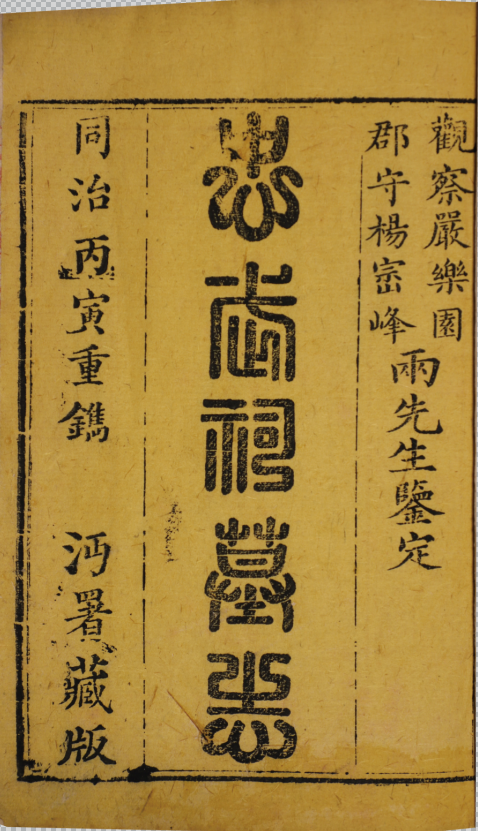 觀察嚴樂園
郡守楊崈峰
兩先生鑒定
忠武祠墓志
同治丙寅重鐫 沔署藏版